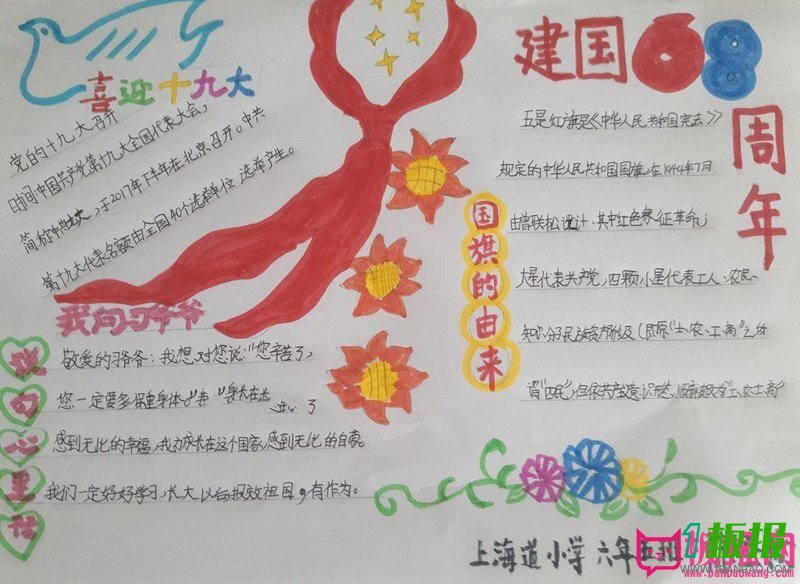 喜迎十九大
党的十九大召开
时间:中国共产党第十九大全国代表大会,
简称中共,于2017年下半年在北京召开。中共
第十九大代表名额由全国40个选举单位选举产生。
我向习爷爷
说句心里话
敬爱的习爷爷:我想对您说:"您辛苦了,
您一定要多保重身体。
感到无比的幸福,我为成长在这个国家,感到无比的自豪。
我们一定好好学习,长大以后报效祖国,有作为。
建国68
周年
国旗的由来
五星红旗是《中华人民共和国宪法》
规定的中华人民共和国国旗,在1949年7月
由曾联松设计,其中红色象征革命;
大星代表共产党,四颗小星代表工人、农民、
知识分子
上海道小学 六年五班
1板报
WWW.1BANBAO.COM
www.banbaowang.com